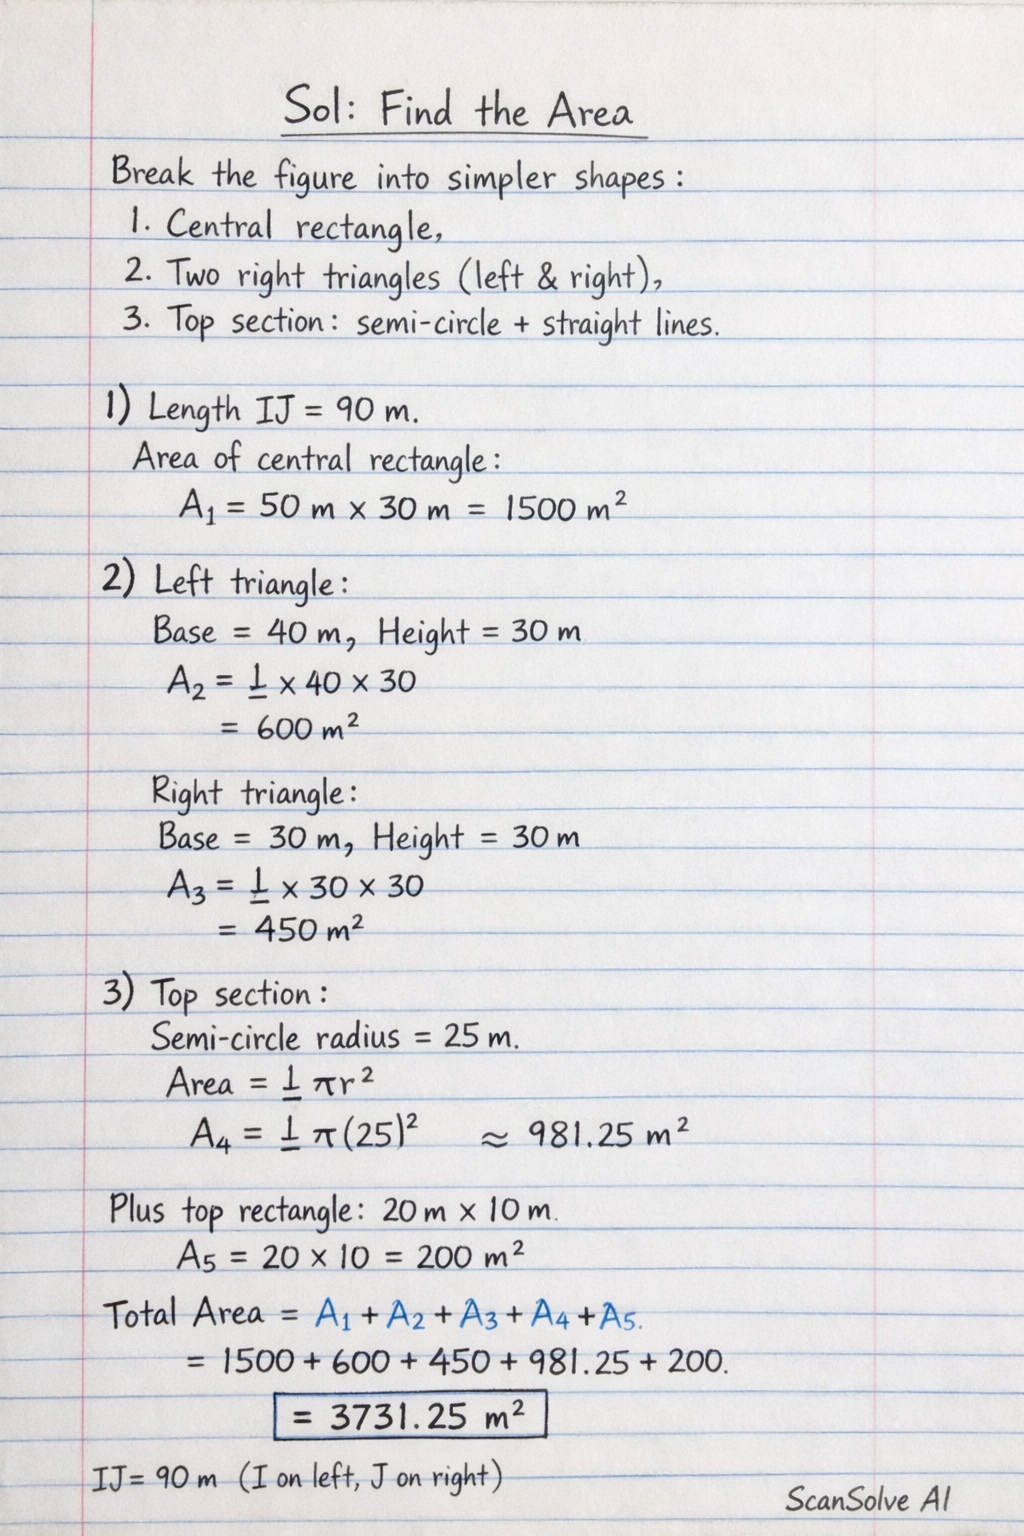 Sol: Find the Area
Break the figure into simpler shapes:
1. Central rectangle,
2. Two right triangles (left & right),
3. Top section: semi-circle + straight lines.
1) Length IJ = 90 m.
Area of central rectangle:
A₁ = 50 m × 30 m = 1500 m²
2) Left triangle:
Base = 40 m, Height = 30 m
A₂ = 1 × 40 × 30
= 600 m²
Right triangle:
Base = 30 m, Height = 30 m
A₃ = 1 × 30 × 30
= 450 m²
3) Top section:
Semi-circle radius = 25 m.
Area = 1 πr²
A₄ = 1 π(25)² ≈ 981.25 m²
Plus top rectangle: 20 m × 10 m.
A₅ = 20 × 10 = 200 m²
Total Area = A₁ + A₂ + A₃ + A₄ + A₅.
= 1500 + 600 + 450 + 981.25 + 200.
= 3731.25 m²
IJ = 90 m (I on left, J on right)
ScanSolve AI